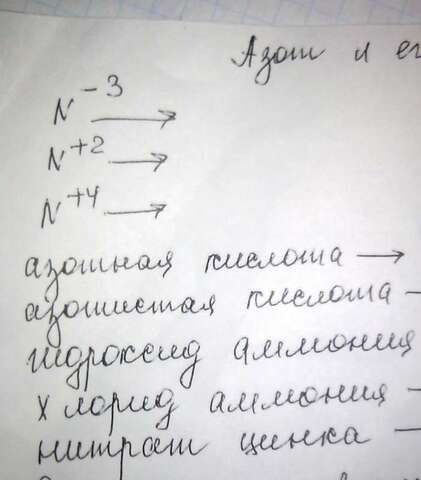 Азот и ег
N⁻³ →
N⁺² →
N⁺⁴ →
азотная кислота →
азотистая кислота –
гидроксид аммония
хлорид аммония –
нитрат цинка –